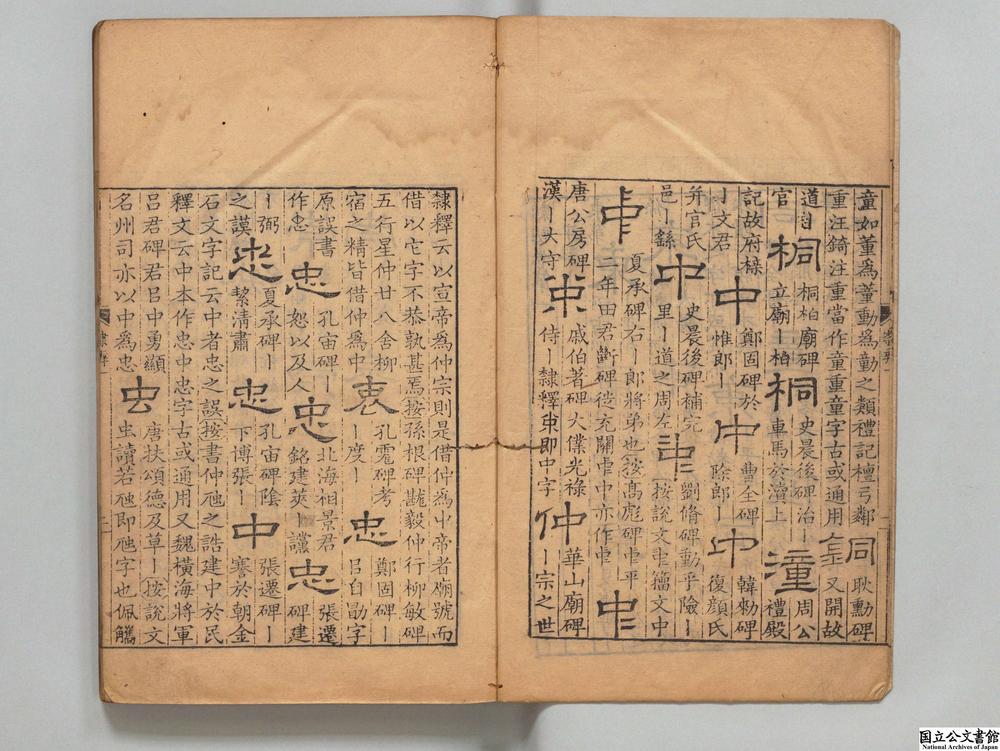 童如董爲蕫動爲勭之類禮記檀弓鄰重汪錡注重當作童重童字古或通用 同 耿勳碑ー又開故
道ー官 桐 桐柏廟碑立廟ー柏 桐 史晨後碑治ー車馬於瀆上 潼 周公禮殿
記故府ー文君 中 鄭固碑於惟郎ー 中 曹全碑除郎ー 中 韓勑碑復顔氏
并官氏邑ー繇 中 史晨後碑補完里ー道之周左 中 劉脩碑動乎險ー按說文籀文中
中 夏承碑右ー郎將弟也按高彪碑平二年田君斷碑從充關中亦作 中
唐公房碑漢ー大守 中 戚伯著碑大僕光祿侍ー隸釋即中字 仲 華山廟碑ー宗之世
隸釋云以宣帝爲仲宗則是借仲爲中帝者廟號而借以它字不恭孰甚焉按孫根碑戡毅仲行柳敏碑
五行星仲廿八舍柳宿之精皆借仲爲中 衷 孔宙碑考ー度ー 忠 鄭固碑ー以自勖字
原誤書作忠 忠 孔宙碑ー恕以及人 忠 北海相景君銘建莢ー讜 忠 張遷碑建
ー弼之謨 忠 夏承碑ー絜清肅 忠 孔宙碑陰下博張ー 中 張遷碑ー謇於朝金
石文字記云中者忠之誤按書仲虺之誥建中於民釋文云中本作忠中忠字古或通用又魏橫海將軍
吕君碑君吕中勇顯名州司亦以中爲忠 虫 唐扶頌德及草ー按說文虫讀若虺即虺字也佩觿
国立公文書館
National Archives of Japan